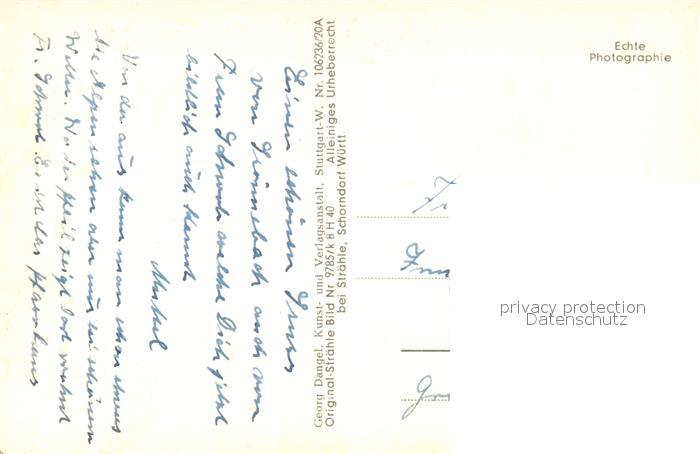 Einen schönen Gruss
von Simmersbach auch von
Frau Schwab welche Dich jetzt
bildlich auch kennt
Von da aus kann man schon etwas
die Alpen sehen aber nur bei schönem
Wetter. Wo der Pfeil zeigt dort wohnt
Fr. Schwab. Es ist das Pfarrhaus
Georg Dangel, Kunst- und Verlagsanstalt, Stuttgart-W. Nr. 106236/20A
Original-Strähle Bild Nr 9785/k B H 40 Alleiniges Urheberrecht
bei Strähle, Schorndorf Württ.
Echte
Photographie
privacy protection
Datenschutz